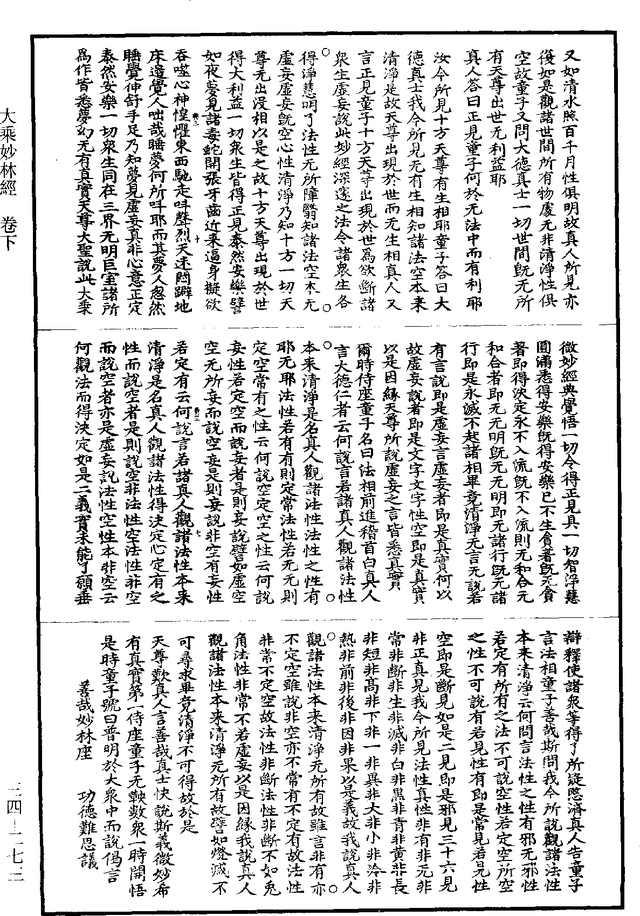 又如清水照百千月性俱明故真人所見亦
復如是觀諸世間所有物處无非清淨性俱
空故童子又問大德真士一切世間旣无所
有天尊出世无利益耶
真人答曰正見童子何於无法中而有利耶
汝今所見十方天尊有生相耶童子答曰大
德真士我今所見无有生相知諸法空本來
清淨是故天尊出現於世而无生相真人又
言正見童子十方天尊出現於世為欲斷諸
衆生虛妄說此妙經深邃之法令諸衆生各
得淨慧明了法性无所障翳知諸法空本无
虛妄虛妄旣空心性清淨乃知十方一切天
尊无出没相以是之故十方天尊出現於世
得大利益一切衆生皆得正見泰然安樂譬
如夜夢見諸毒蛇開張牙齒近來逼身擬欲
吞噬心神惶懼東西馳走叫聲烈天迷悶躃地
床邊覺人咄哉睡夢何所叫耶而其夢人忽然
睡覺伸舒手足乃知夢見虛妄真非心意正定
泰然安樂一切衆生同在三界无明巨室諸所
爲作皆悉夢幻无有真實天尊大聖說此大乘
微妙經典覺悟一切令得正見具一切智淨慧
圓滿悉得安樂旣得安樂已不生貪著旣无貪
著即得決定永不入流旣不入流則无和合元
和合者即无无明旣无无明即无諸行旣无諸
行即是永滅不起諸相畢竟清淨无言无說若
有言說即是虛妄言虛妄者即是真實何以
故虛妄說者即是文字文字性空即是真實
以是因緣天尊所說虛妄之言皆悉真實
爾時侍座童子名曰法相前進稽首白真人
言大德仁者云何說言若諸真人觀諸法性
本來清淨是名真人觀諸法性法性之性有
耶无耶法性若有有則定常法性若无无則
定空常有之性云何說空定空之性云何說
妄性若定空而說妄者是則妄說譬如虛空
空无所妄而說空妄是則妄說非空有妄性
若定有云何說言若諸真人觀諸法性本來
清淨是名真人觀諸法性得決定心定有之
性而說空者是則說空非法性空法性非空
而說空者亦是虛妄說法性空性本非空云
何觀法而得決定如是二義實未能了願垂
辯釋使諸衆等得了所疑愍濟真人告童子
言法相童子善哉斯問我今所說觀諸法性
本來清淨云何問言法性之性有邪无邪性
若定有所有之法不可說空性若定空所空
之性不可說有若見性有即是常見若見性
空即是斷見如是二見即是邪見三十六見
非正真見我今所見法性真性非有非无非
常非斷非生非滅非白非黑非青非黃非長
非短非高非下非一非異非大非小非冷非
熱非前非後非因非果以是義故我說真人
觀諸法性本來清淨无所有故雖言非有亦
不定空雖說非空亦不常有不定有故法性
非常不定空故法性非斷法性非斷不如兎
角法性非常不若虛妄以是因緣我說真人
觀諸法性本來清淨无所有故譬如燈滅不
可尋求畢竟清淨不可得故於是
天尊歎真人言善哉真士快說斯義微妙希
有真實第一侍座童子无鞅數衆一時開悟
是時童子號曰普明於大衆中而說偈言
善哉妙林座　功德難思議
大乘妙林經 卷下